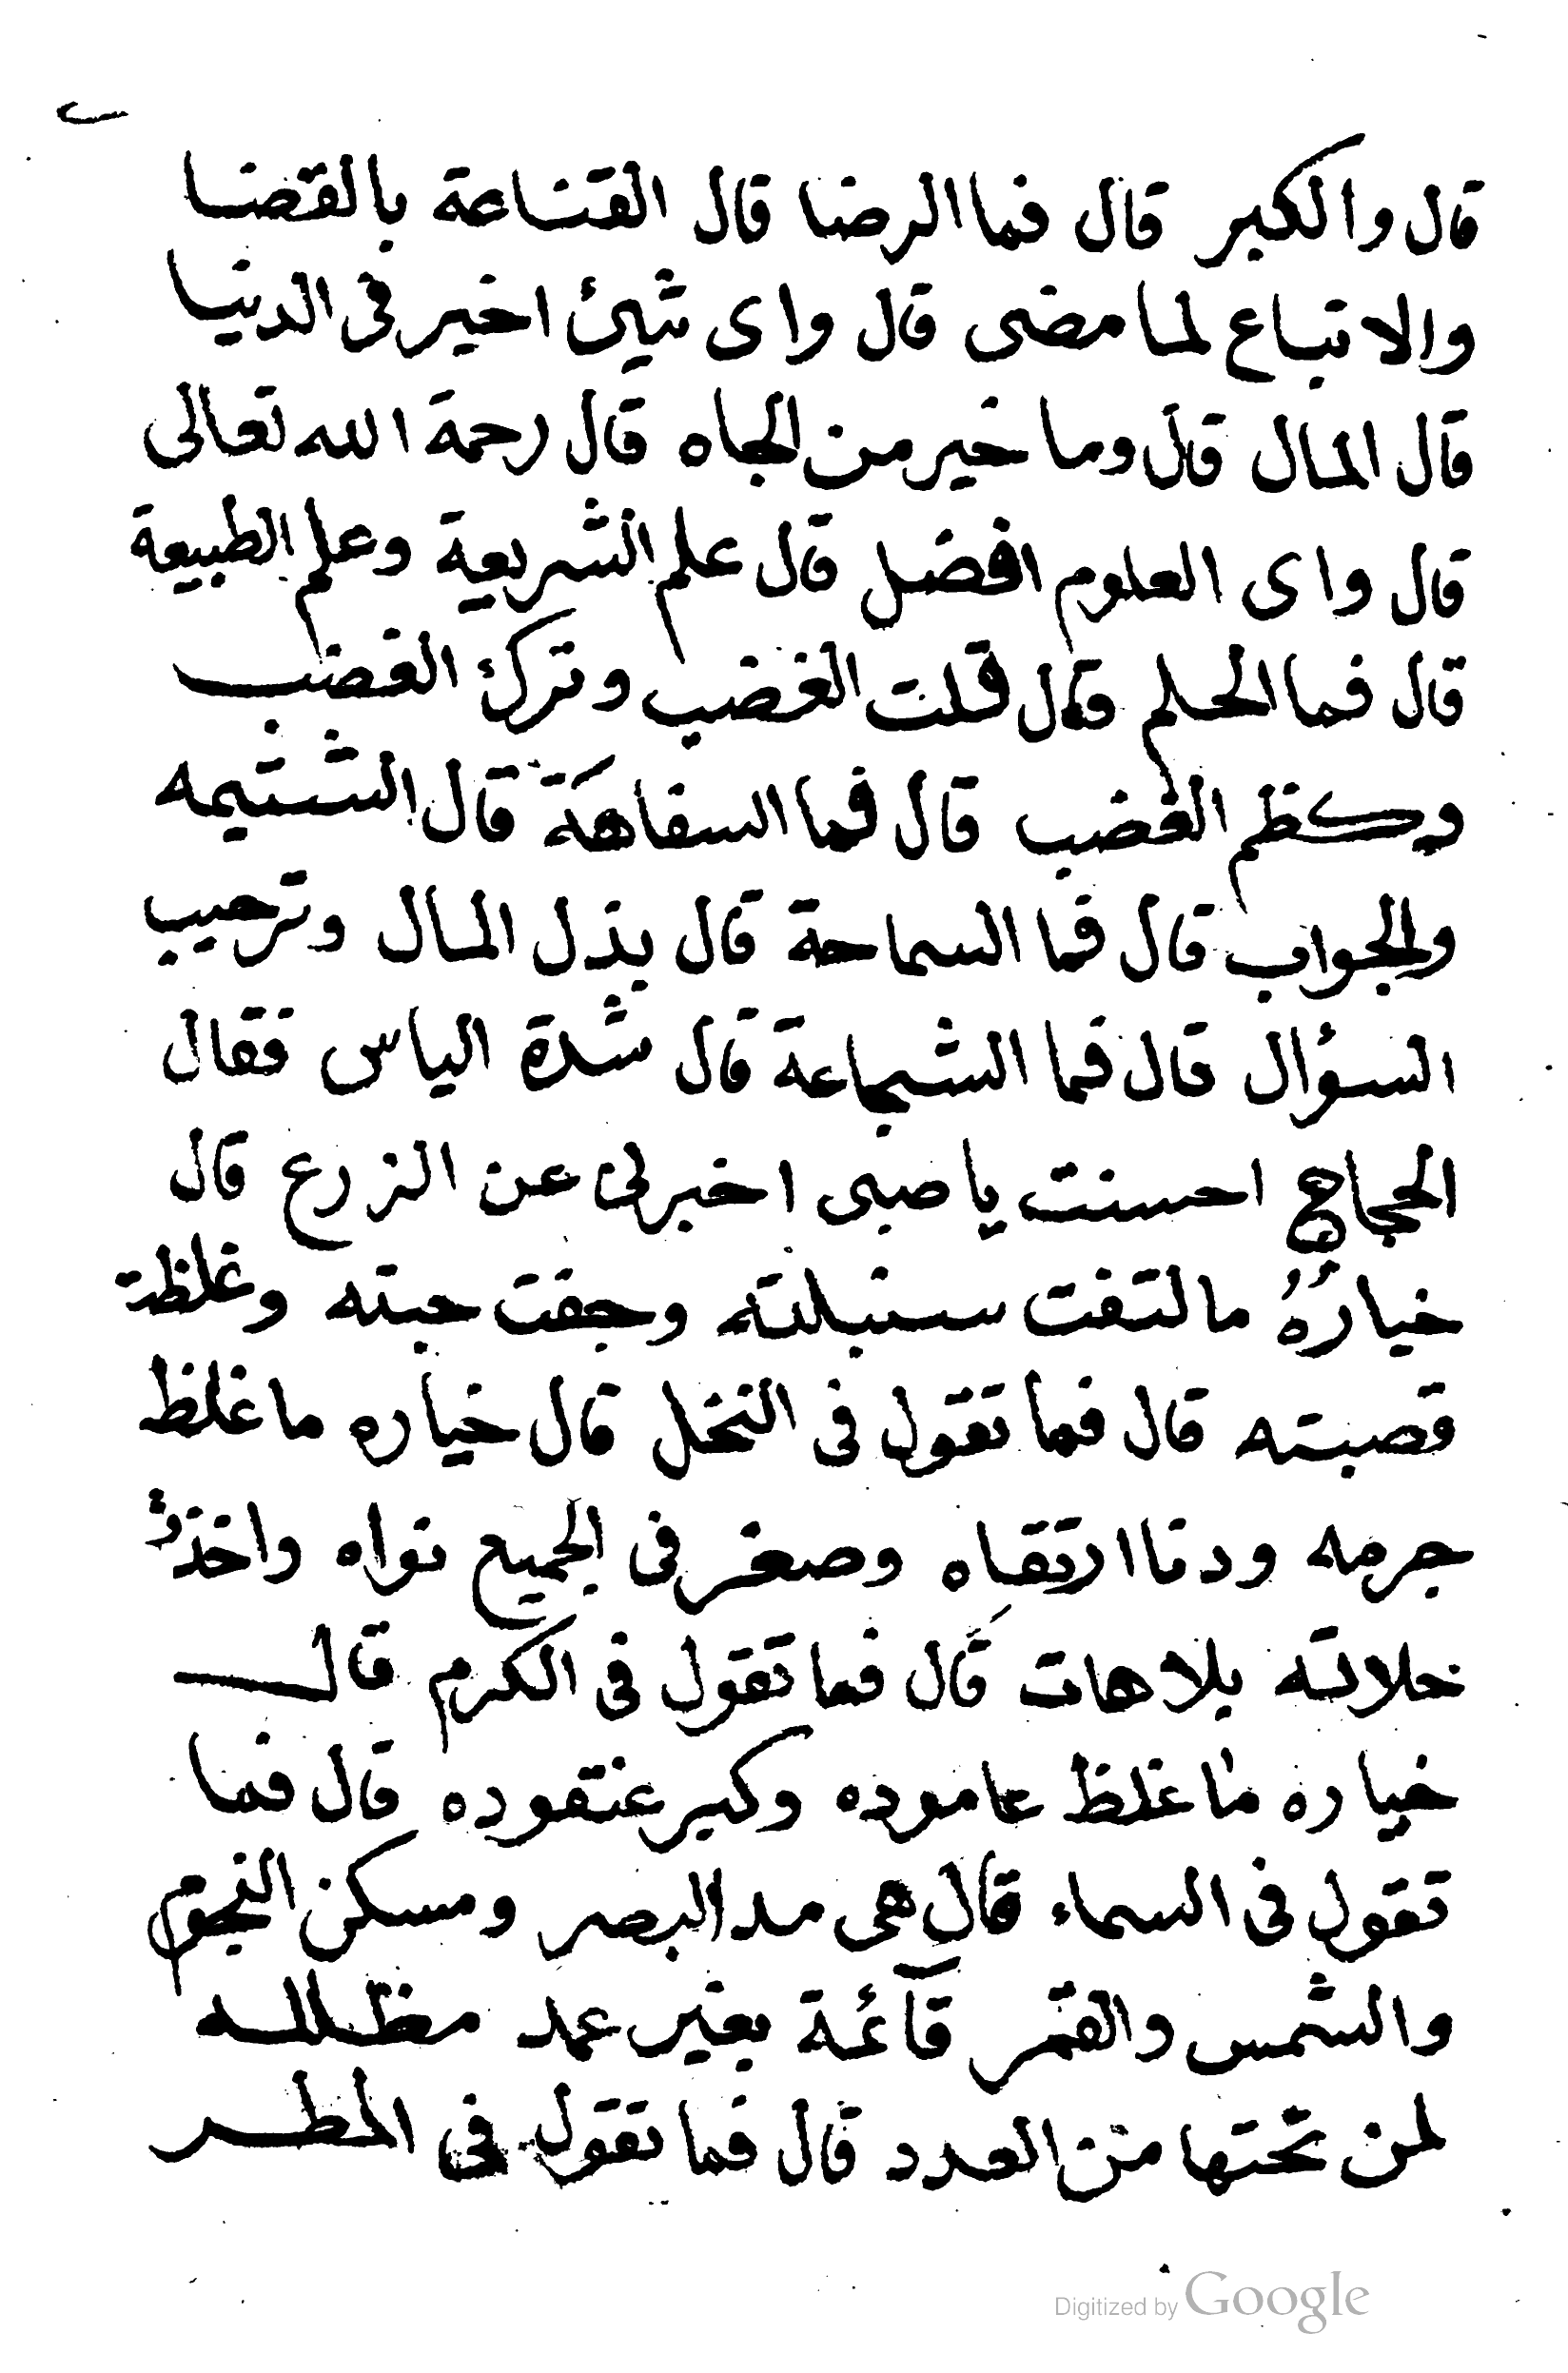 قال والكبر قال فما الرضا قال القناعة بالقضا
والاتباع لما مضى قال واى شيئ اخير فى الدنيا
قال المال قال وما خير من الجاه قال رحمة الله تعالى
قال واى العلوم افضل قال علم الشريعة وعلم الطبيعة
قال فما الحلم قال قلت الغضب وترك الغضب
وكظم الغضب قال فما السفاهة قال الشتيمه
والجواب قال فما السماحة قال بذل المال وترحيب
السؤال قال فما الشجاعة قال شدة الياس فقال
الحجاج احسنت يا صبى اخبرنى عن الزرع قال
خيارُهُ ما لتفت سنبلته وجفت حبته وغلظت
قصبته قال فما تقول فى النخل قال خياره ما غلظ
جرمه ودنا ارتقاه وصغر فى الجميع نواه واخذ
خلاته بلاهات قال فما تقول فى الكرم قال
خياره ما غلظ عاموده وكبر عنقوده قال فما
تقول فى السماء قال هى مد البصر ومسكن النجوم
والشمس والقمر قآئمة بغير عمد مظلله
لمن تحتها من العدد قال فما تقول فى المطر
Digitized by Google